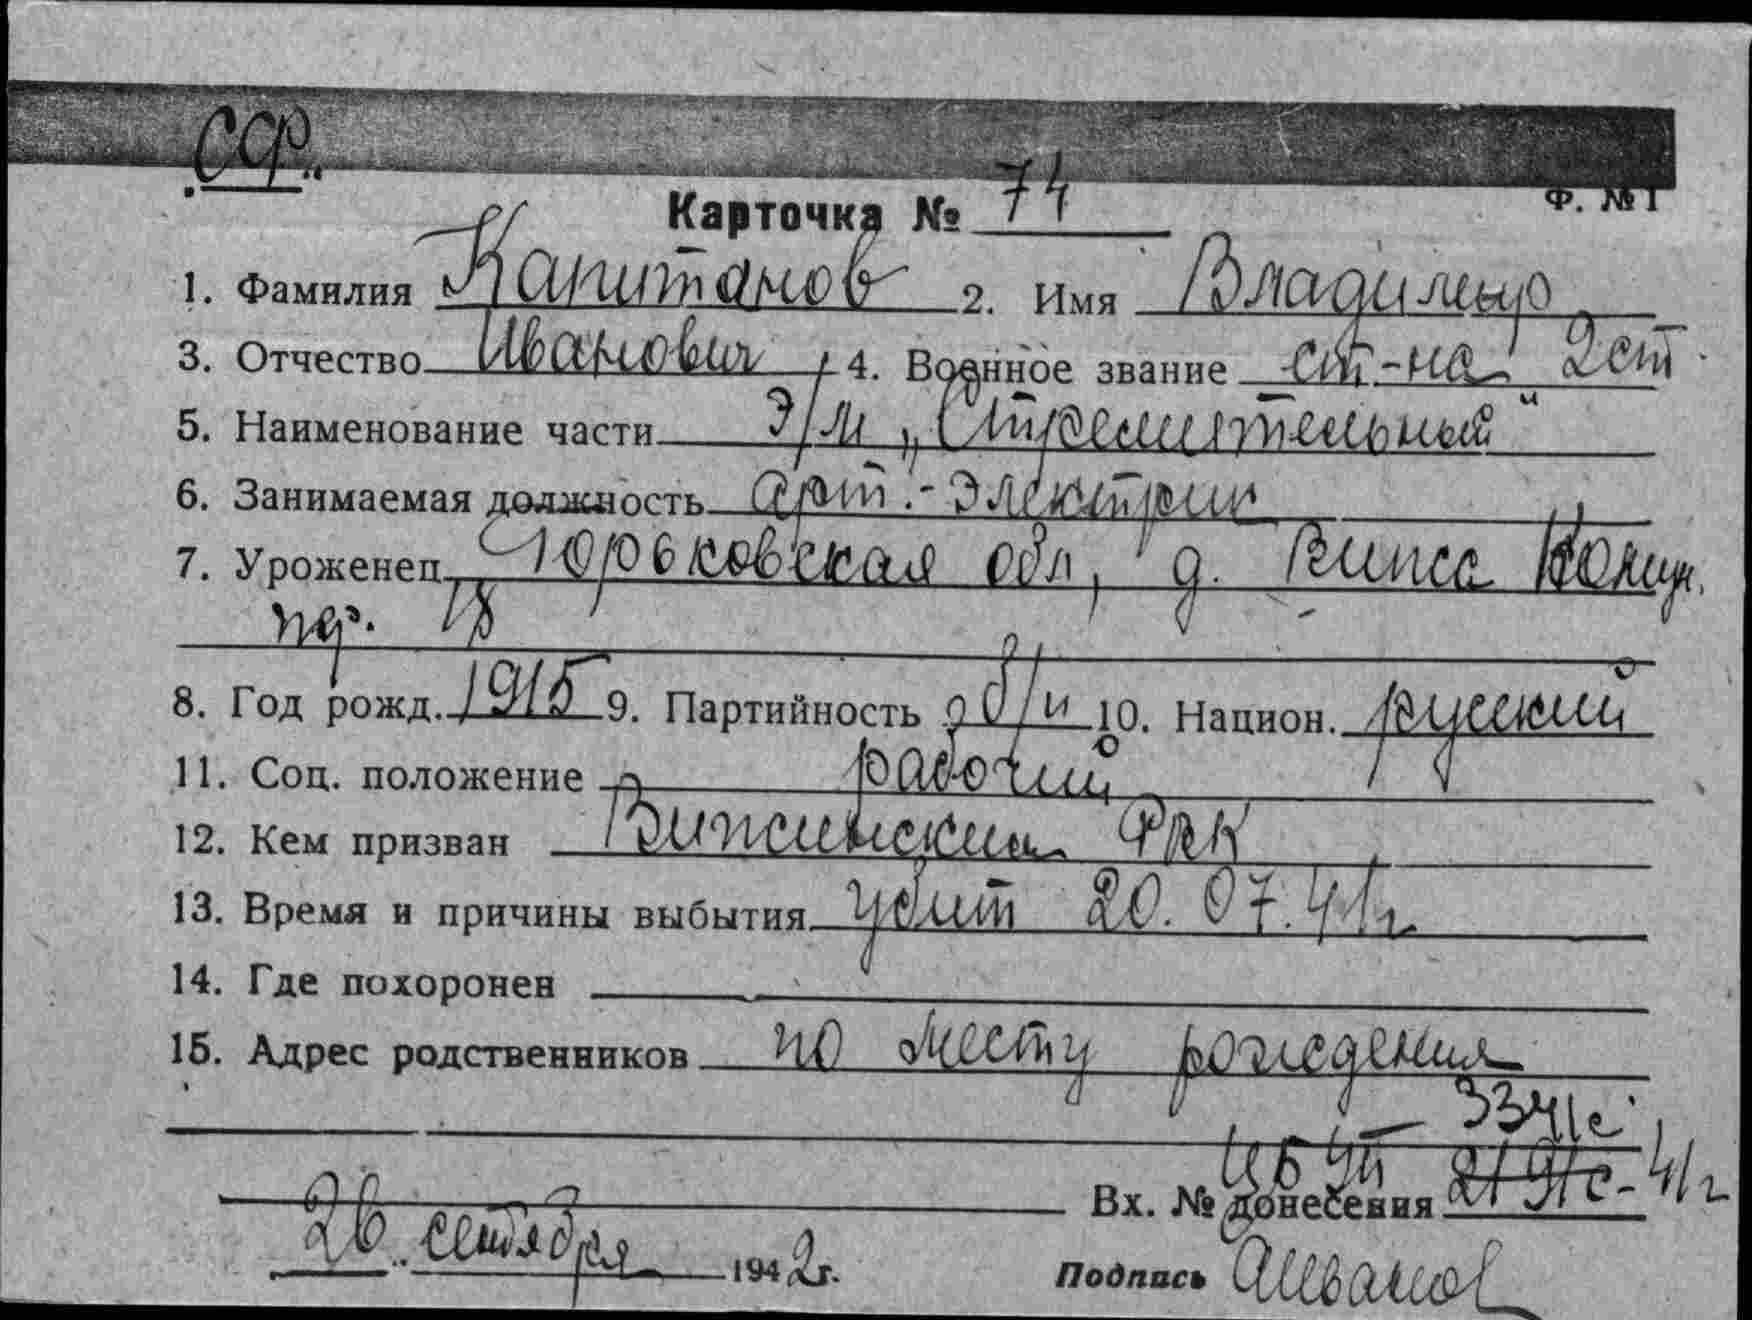 ССФ
Карточка № 74
Ф. № 1
1. Фамилия Капитанов 2. Имя Владимир
3. Отчество Иванович 4. Военное звание ст-на 2 ст
5. Наименование части Э/М „Стремительный“
6. Занимаемая должность арт.-электрик
7. Уроженец Горьковская обл, д.
пер. 18
8. Год рожд. 1915 9. Партийность б/п 10. Национ. русский
11. Соц. положение рабочий
12. Кем призван РВК
13. Время и причины выбытия убит 20.07.41г.
14. Где похоронен
15. Адрес родственников по месту рождения
3341с
Вх. № донесения 41г
26 сентября 1942г.
Подпись